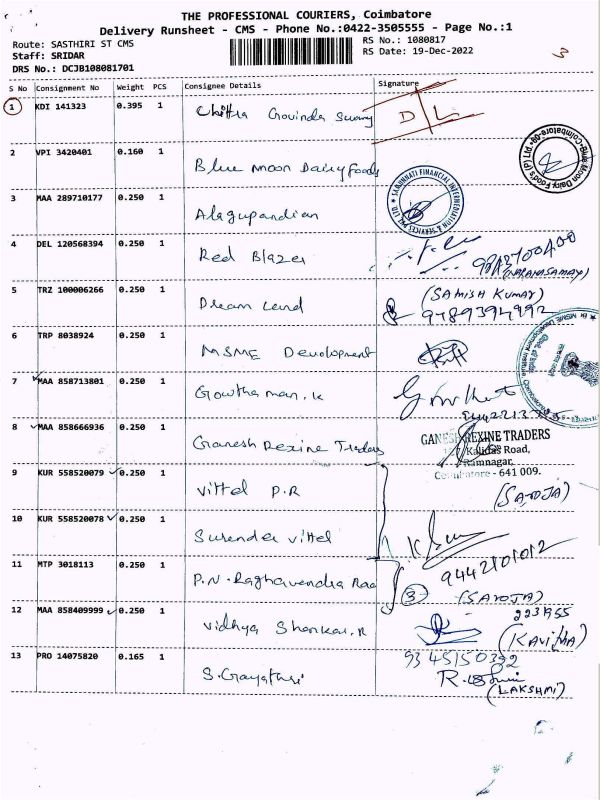 THE PROFESSIONAL COURIERS, Coimbatore
Delivery Runsheet - CMS - Phone No.:0422-3505555 - Page No.:1
Route: SASTHIRI ST CMS
RS No.: 1080817
Staff: SRIDAR
RS Date: 19-Dec-2022
3
DRS No.: DCJB108081701
S No Consignment No Weight PCS Consignee Details Signature
1 KDI 141323 0.395 1 Chittra Govinda Swamy D/L
2 VPI 3420401 0.160 1 Blue Moon Dairy Foods
3 MAA 289710177 0.250 1 Alagupandian
4 DEL 120568394 0.250 1 Red Blazer
5 TRZ 100006266 0.250 1 Dream Land (SATHISH KUMAR)
9489394992
6 TRP 8038924 0.250 1 MSME Development
7 MAA 858713801 0.250 1 Gowthaman.K
8 MAA 858666936 0.250 1 Ganesh Rexine Traders
GANESH REXINE TRADERS
Kalidas Road,
Ramnagar,
Coimbatore - 641 009.
9 KUR 558520079 0.250 1 Vittel P.R (SAROJA)
10 KUR 558520078 0.250 1 Surender Vittel
9442101012
11 MTP 3018113 0.250 1 P.N. Raghavendra Rao 3 (SAROJA)
12 MAA 858409999 0.250 1 Vidhya Shankar.R
(KAVITHA)
9345150392
13 PRO 14075820 0.165 1 S.Gayathri
(LAKSHMI)